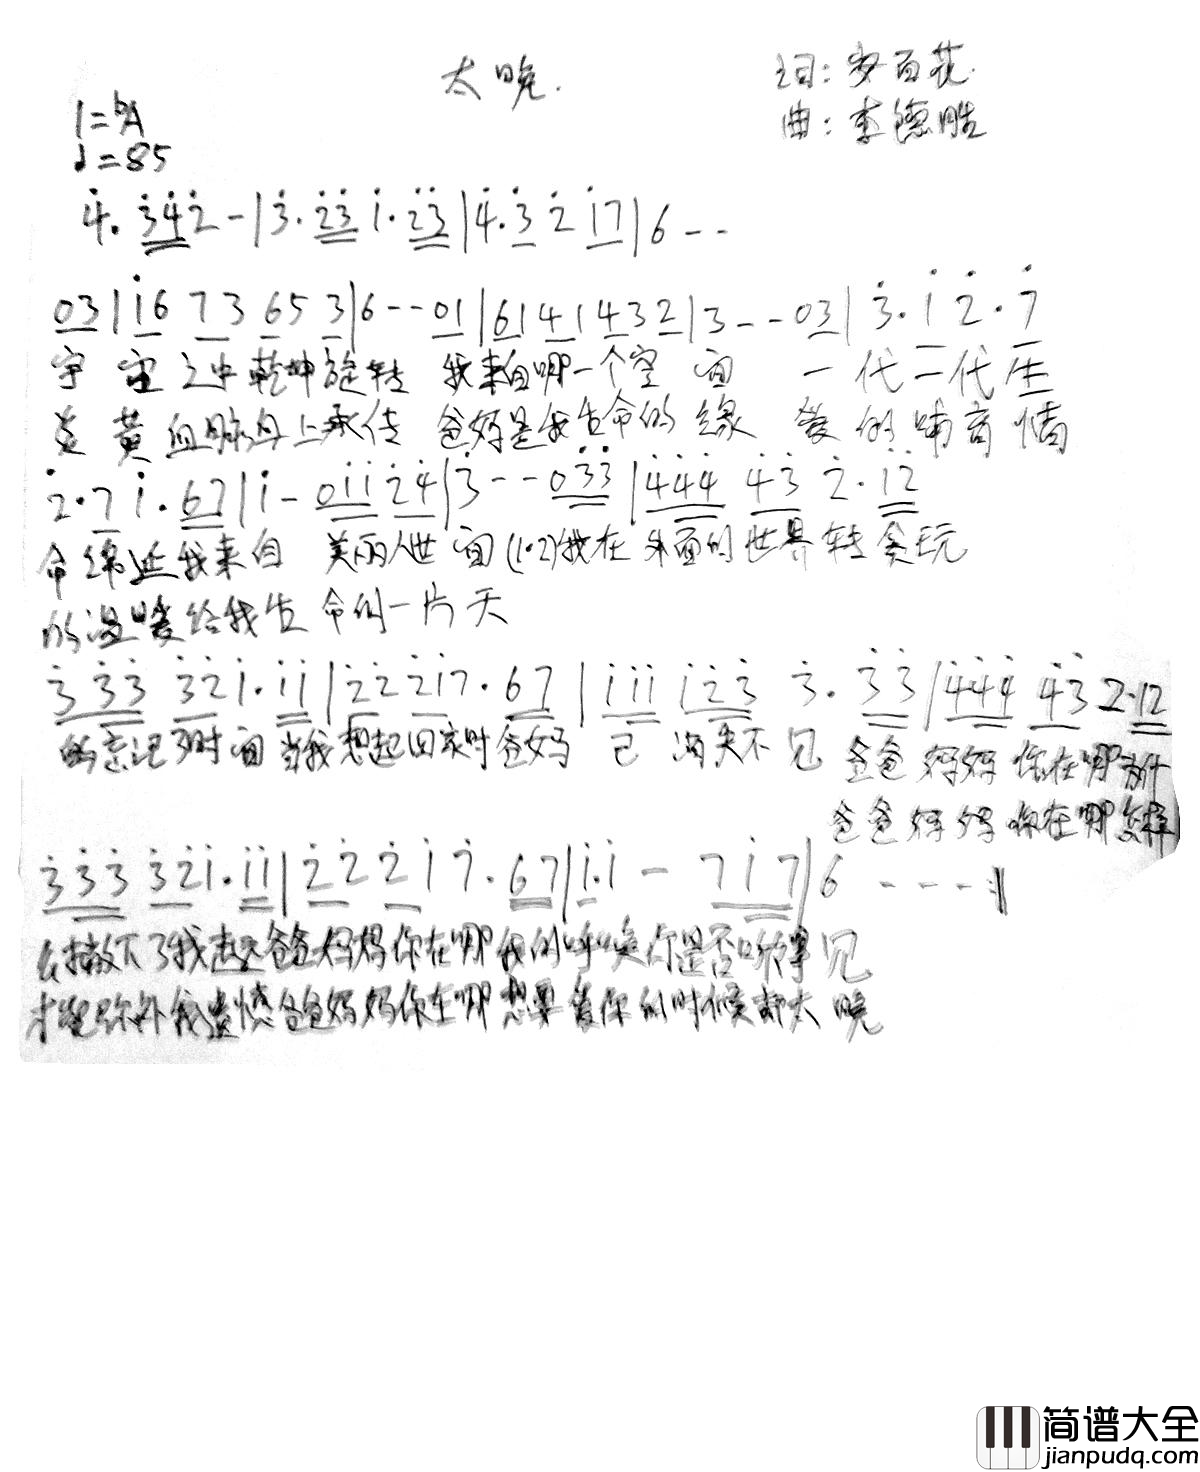 太晚.
词: 安百花
曲: 李德胜
1=bA
♩=85
4̇. 3̇4̇2̇ - | 3̇. 2̇3̇ 1̇. 2̇3̇ | 4̇. 3̇ 2̇ 1̇7 | 6 - -
03 | 1̇6 73 65 3 | 6 - - 01 | 61 41 432 | 3 - - 03 | 3̇. 1̇ 2̇. 7
宇宙之中乾坤旋转 我来自哪一个空间 一代一代生
炎黄血脉身上承传 爸妈是我生命的缘 爱的哺育情
2̇. 7 1̇. 67 | 1̇ - 01̇1̇ 2̇4̇ | 3̇ - - 03̇3̇ | 4̇4̇4̇ 4̇3̇ 2̇. 1̇2̇
命绵延我来自 美丽人世间(1.2)我在外面的世界转贪玩
的温暖给我生命的一片天
3̇ 3̇3̇ 3̇2̇1̇. 1̇1̇ | 2̇2̇ 2̇17. 67 | 1̇1̇1̇ 1̇2̇3̇ 3̇. 3̇3̇ | 4̇4̇4̇ 4̇3̇ 2. 12
的忘记了时间当我想起回家时爸妈 已消失不见 爸爸妈妈你在哪为什
爸爸妈妈你在哪怎样
3̇3̇3̇ 3̇2̇1̇. 1̇1̇ | 2̇2̇ 2̇1 7. 67 | 1̇. 1̇ - 71̇7 | 6 - - - :‖
么撇下了我走远爸爸妈妈你在哪我的呼唤你是否听得见
才能弥补我遗憾爸爸妈妈你在哪想要爱你的时候却太晚
简谱大全
jianpudq.com